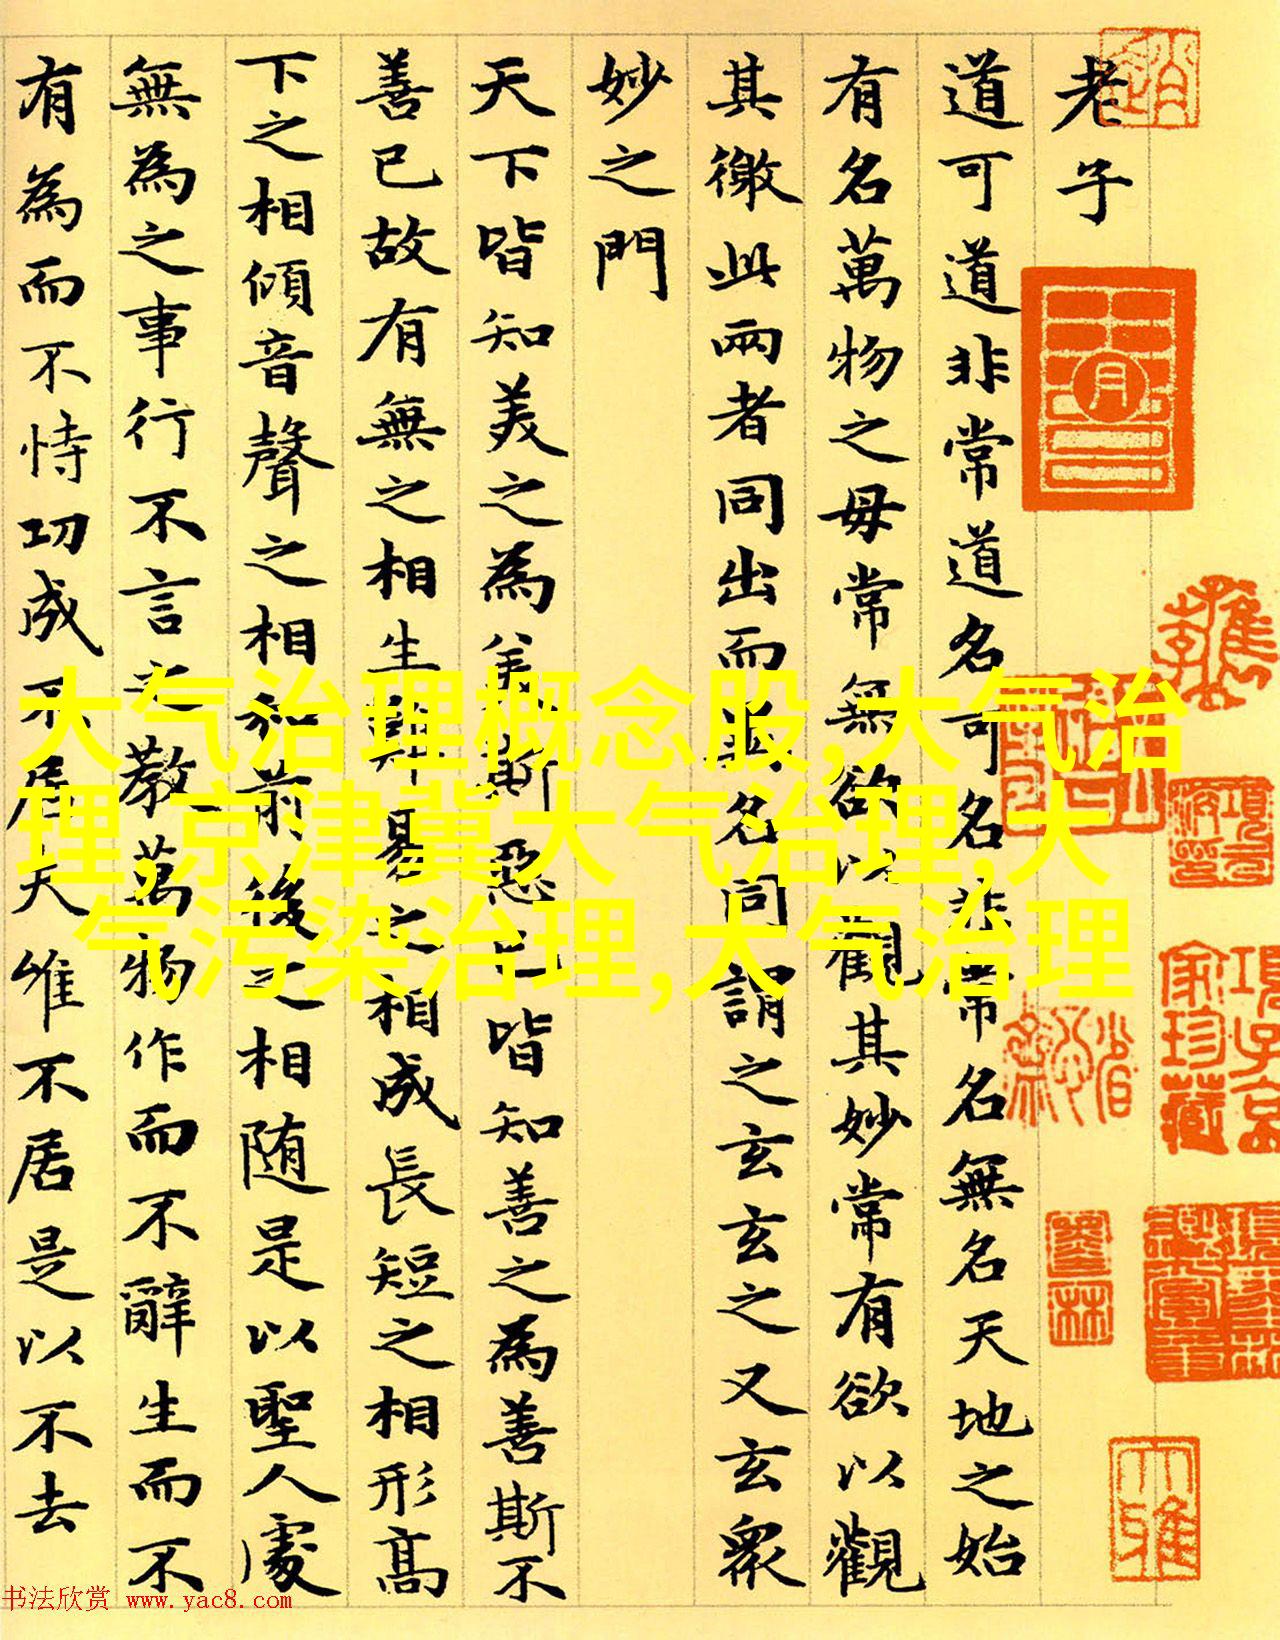 老子
道可道非常道名可名非常名無名天地之始
有名萬物之毋常無欲以觀其妙常有欲以觀
其徼此兩者同出而異名同謂之玄玄之又玄衆
妙之門
天下皆知美之為美斯惡已皆知善之為善斯不
善已故有無之相生難易之相成長短之相形髙
下之相傾音聲之相和前後之相随是以聖人處
無為之事行不言之教萬物作而不辭生而不
有為而不恃功成不居夫惟不居是以不去
大气治理概念股,大气治
理,京津冀大气治理,大
气污染治理,大气治理
項子京
家珍藏
书法欣赏 www.yac8.com